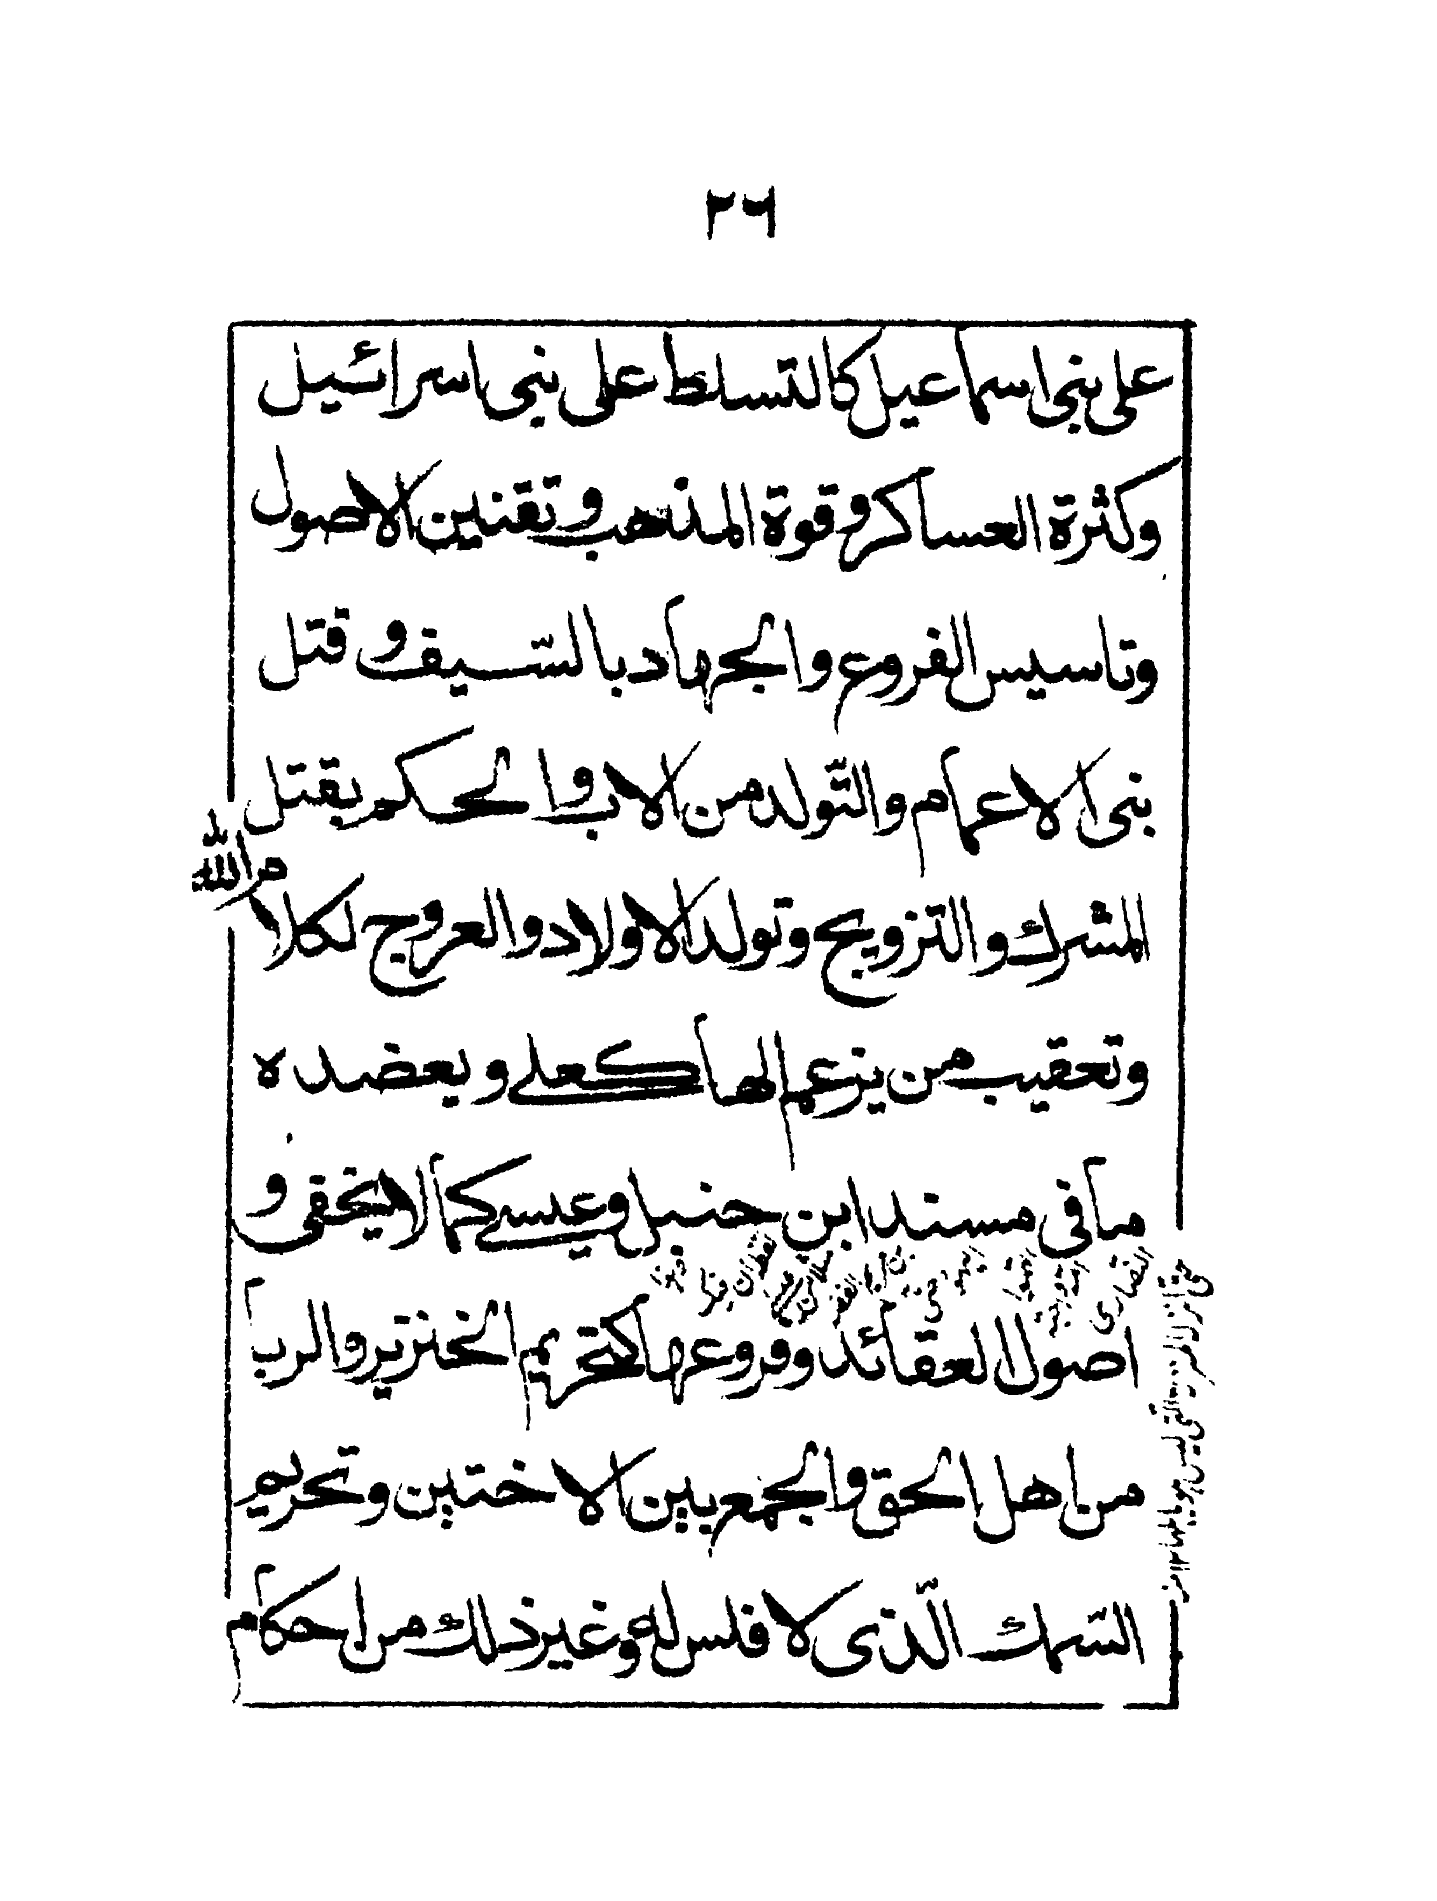 ٢٦
على بنى اسماعيل كالتسلط على بنى اسرائيل
وكثرة العساكر وقوة المذهب وتقنين الاصول
وتاسيس الفروع والجهاد بالسّيف وقتل
بنى الاعمام والتّولد من الاب والحكم بقتل
المشرك والتزويج وتولد الاولاد والعروج لكلا
وتعقيب من يزعم الها كعلى ويعضده
ما فى مسند ابن حنبل وعيسى كما لا يخفى و
اصول العقائد وفروعها كتحريم الخنزير والربا
من اهل الحق والجمع بين الاختين وتحريم
السّمك الّذى لا فلس له وغير ذلك من احكام